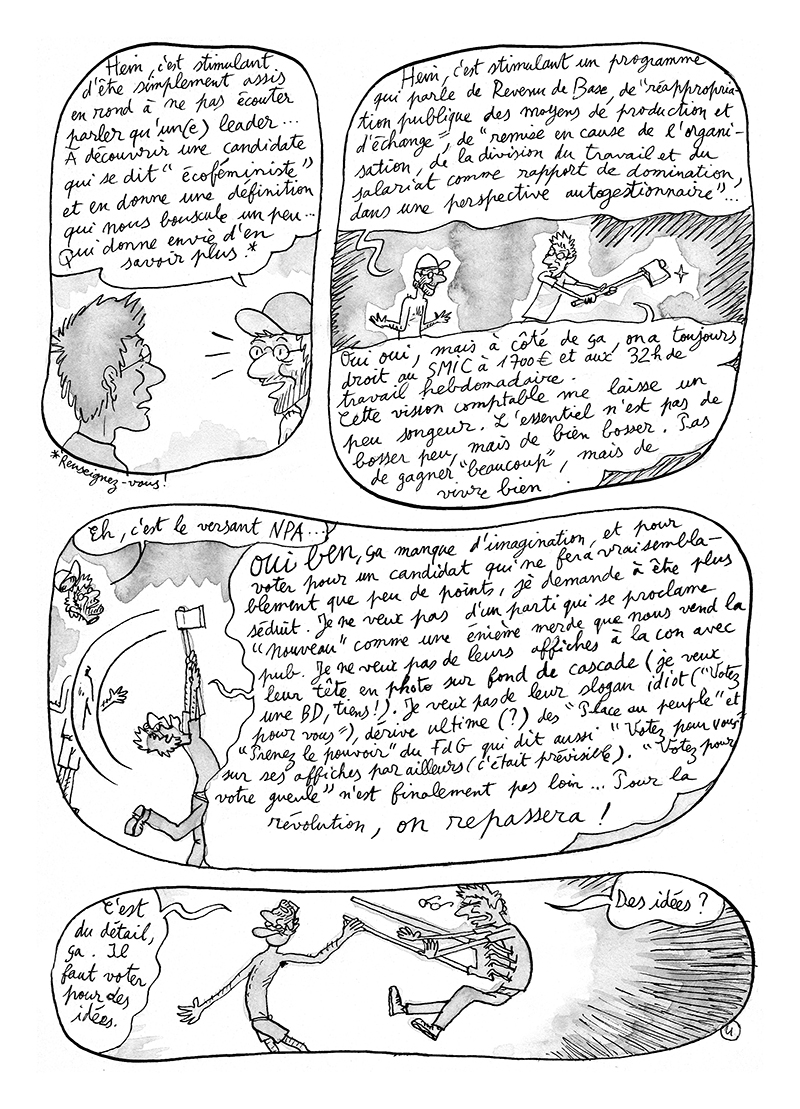 Hein, c'est stimulant
d'être simplement assis
en rond à ne pas écouter
parler qu'un(e) leader...
À découvrir une candidate
qui se dit "écoféministe"
et en donne une définition
qui nous bouscule un peu...
Qui donne envie d'en
savoir plus.*
*Renseignez-vous!
Hein, c'est stimulant un programme
qui parle de Revenu de Base, de "réappropria-
tion publique des moyens de production et
d'échange", de "remise en cause de l'organi-
sation, de la division du travail et du
salariat comme rapport de domination,
dans une perspective autogestionnaire"...
Oui oui, mais à côté de ça, on a toujours
droit au SMIC à 1700€ et aux 32h de
travail hebdomadaire.
Cette vision comptable me laisse un
peu songeur. L'essentiel n'est pas de
bosser peu, mais de bien bosser. Pas
de gagner "beaucoup", mais de
vivre bien.
Eh, c'est le versant NPA...
Oui ben, ça manque d'imagination, et pour
voter pour un candidat qui ne fera vraisembla-
blement que peu de points, je demande à être plus
séduit. Je ne veux pas d'un parti qui se proclame
"nouveau" comme une énième merde que nous vend la
pub. Je ne veux pas de leurs affiches à la con avec
leur tête en photo sur fond de cascade (je veux
une BD, tiens!). Je veux pas de leur slogan idiot ("Votez
pour vous"), dérive ultime (?) des "Place au peuple" et
"Prenez le pouvoir" du FdG qui dit aussi "Votez pour vous"
sur ses affiches par ailleurs (c'était prévisible). "Votez pour
votre gueule" n'est finalement pas loin... Pour la
révolution, on repassera!
C'est
du détail,
ça. Il
faut voter
pour des
idées.
Des idées?
4